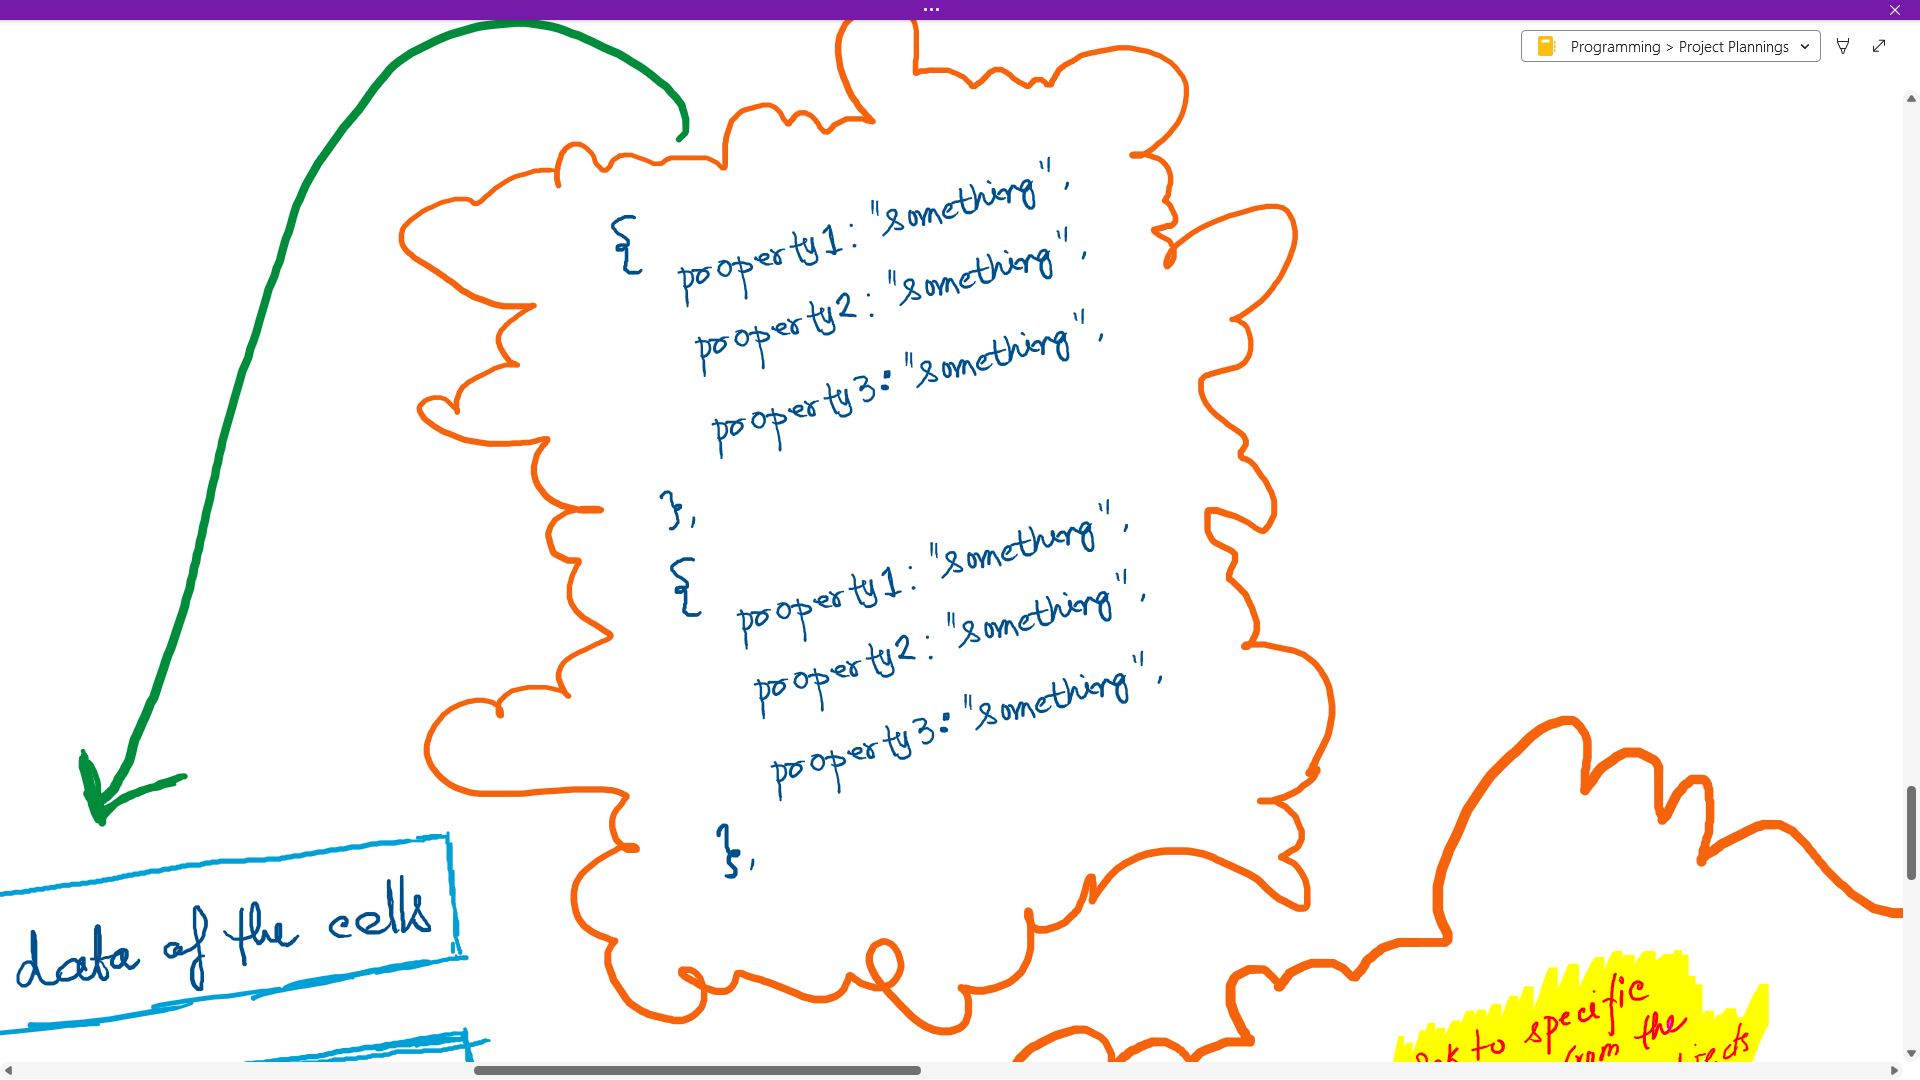 Programming > Project Plannings
{
property1: "something",
property2: "something",
property3: "something",
},
{
property1: "something",
property2: "something",
property3: "something",
},
data of the cells
to specific
from the